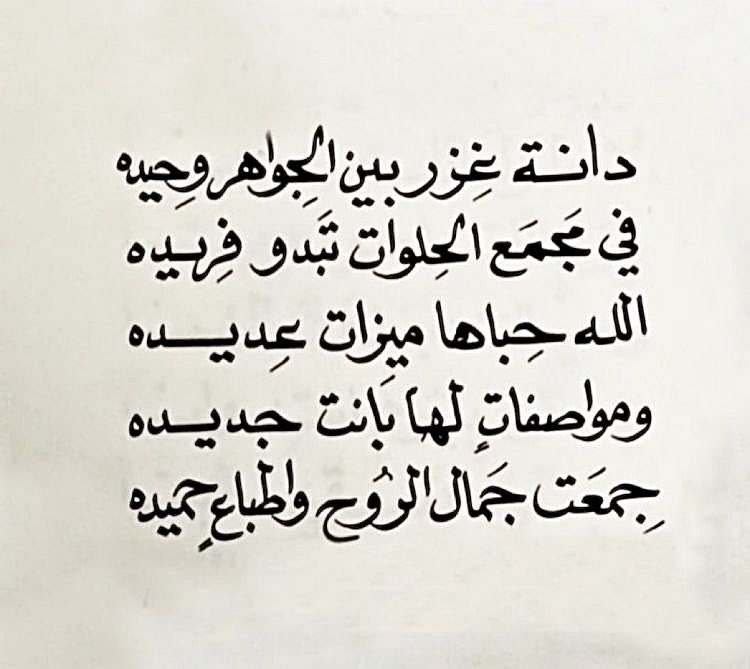 دانة غِزر بين الجِواهر وحِيده
في مَجمَع الحِلوات تَبدو فِريده
الله حِباها ميزات عِديده
ومواصفاتٍ لها بَانت جديده
جِمعَت جَمال الرُوح واطباعٍ حميده